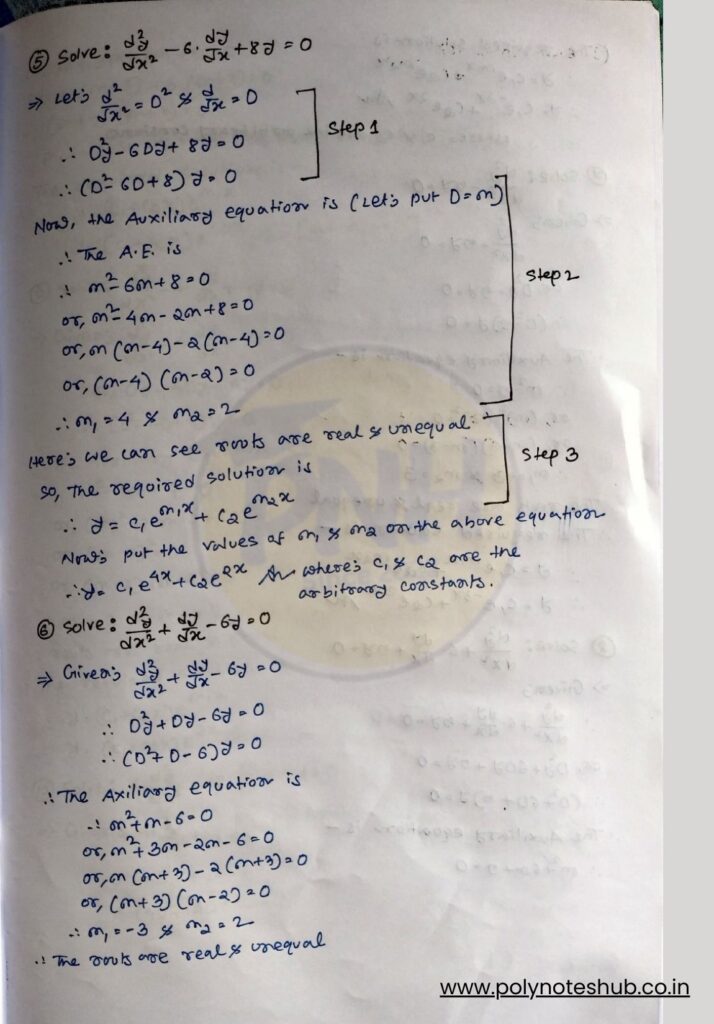 ⑤ Solve: d²y/dx² - 6. dy/dx + 8y = 0
⇒ Let's d²/dx² = D² & d/dx = D
∴ D²y - 6Dy + 8y = 0
Step 1
∴ (D² - 6D + 8) y = 0
Now, the Auxiliary equation is (Let's put D = m)
∴ The A.E. is
∴ m² - 6m + 8 = 0
Step 2
or, m² - 4m - 2m + 8 = 0
or, m (m-4) - 2 (m-4) = 0
or, (m-4) (m-2) = 0
∴ m₁ = 4 & m₂ = 2
Here, we can see roots are real & unequal.
Step 3
So, The required solution is
∴ y = c₁e^m₁x + c₂e^m₂x
Now, put the values of m₁ & m₂ on the above equation
∴ y = c₁e^4x + c₂e^2x Ans where, c₁ & c₂ are the
arbitrary constants.
⑥ Solve: d²y/dx² + dy/dx - 6y = 0
⇒ Given, d²y/dx² + dy/dx - 6y = 0
∴ D²y + Dy - 6y = 0
∴ (D² + D - 6) y = 0
∴ The Axiliary equation is
∴ m² + m - 6 = 0
or, m² + 3m - 2m - 6 = 0
or, m (m+3) - 2 (m+3) = 0
or, (m+3) (m-2) = 0
∴ m₁ = -3 & m₂ = 2
∴ The roots are real & unequal
PNH
www.polynoteshub.co.in